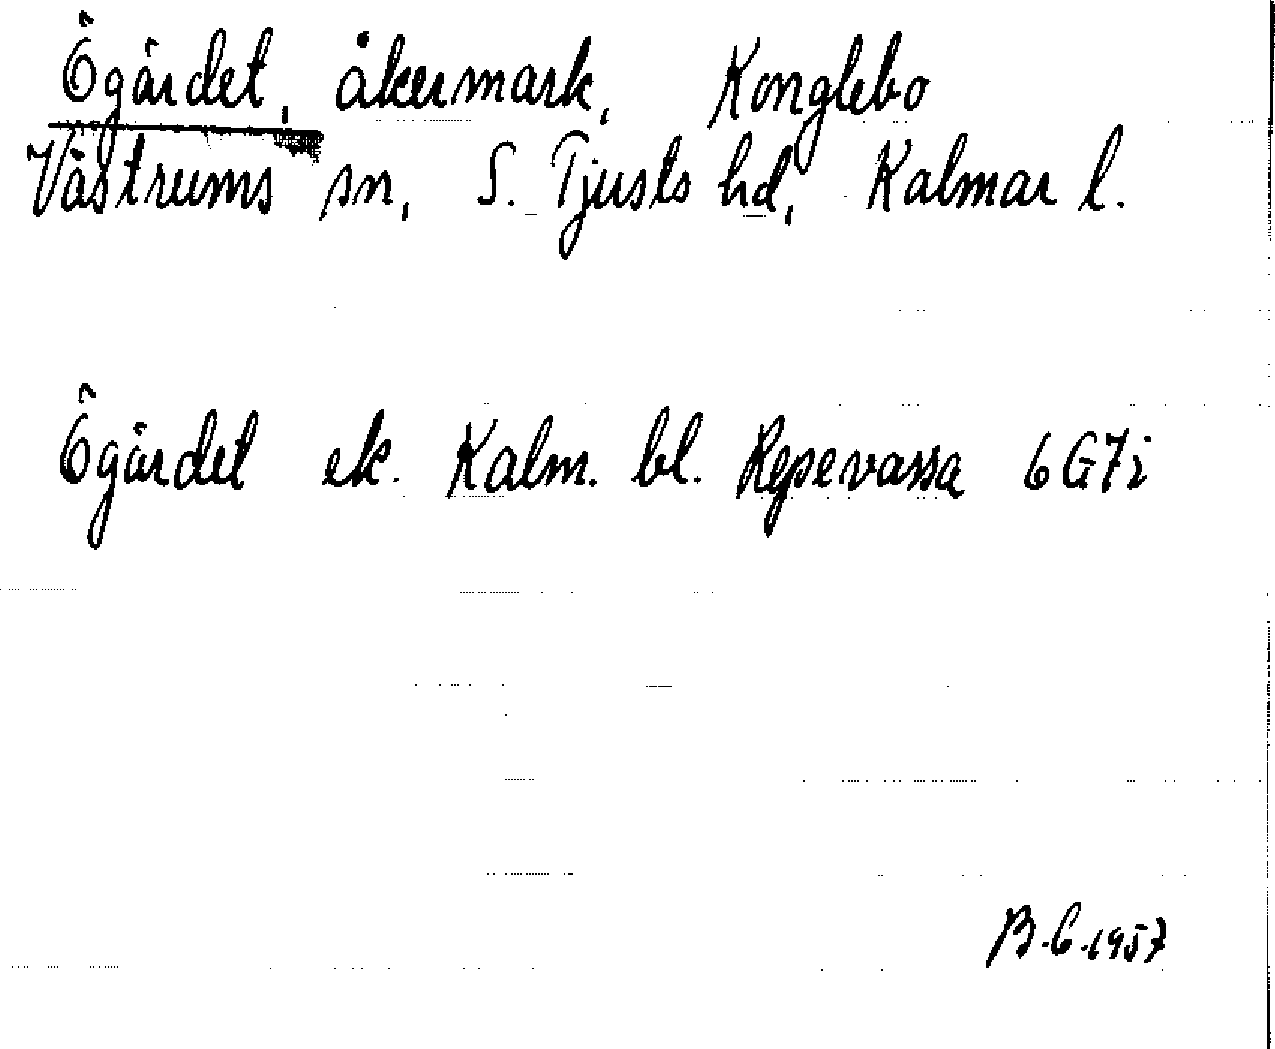 Ögärdet, åkermark, Konglebo
Västrums sn, S. Tjusts hd, Kalmar l.
Ögärdet ek. Kalm. bl. Repevassa 6G7i
B.C. 1957